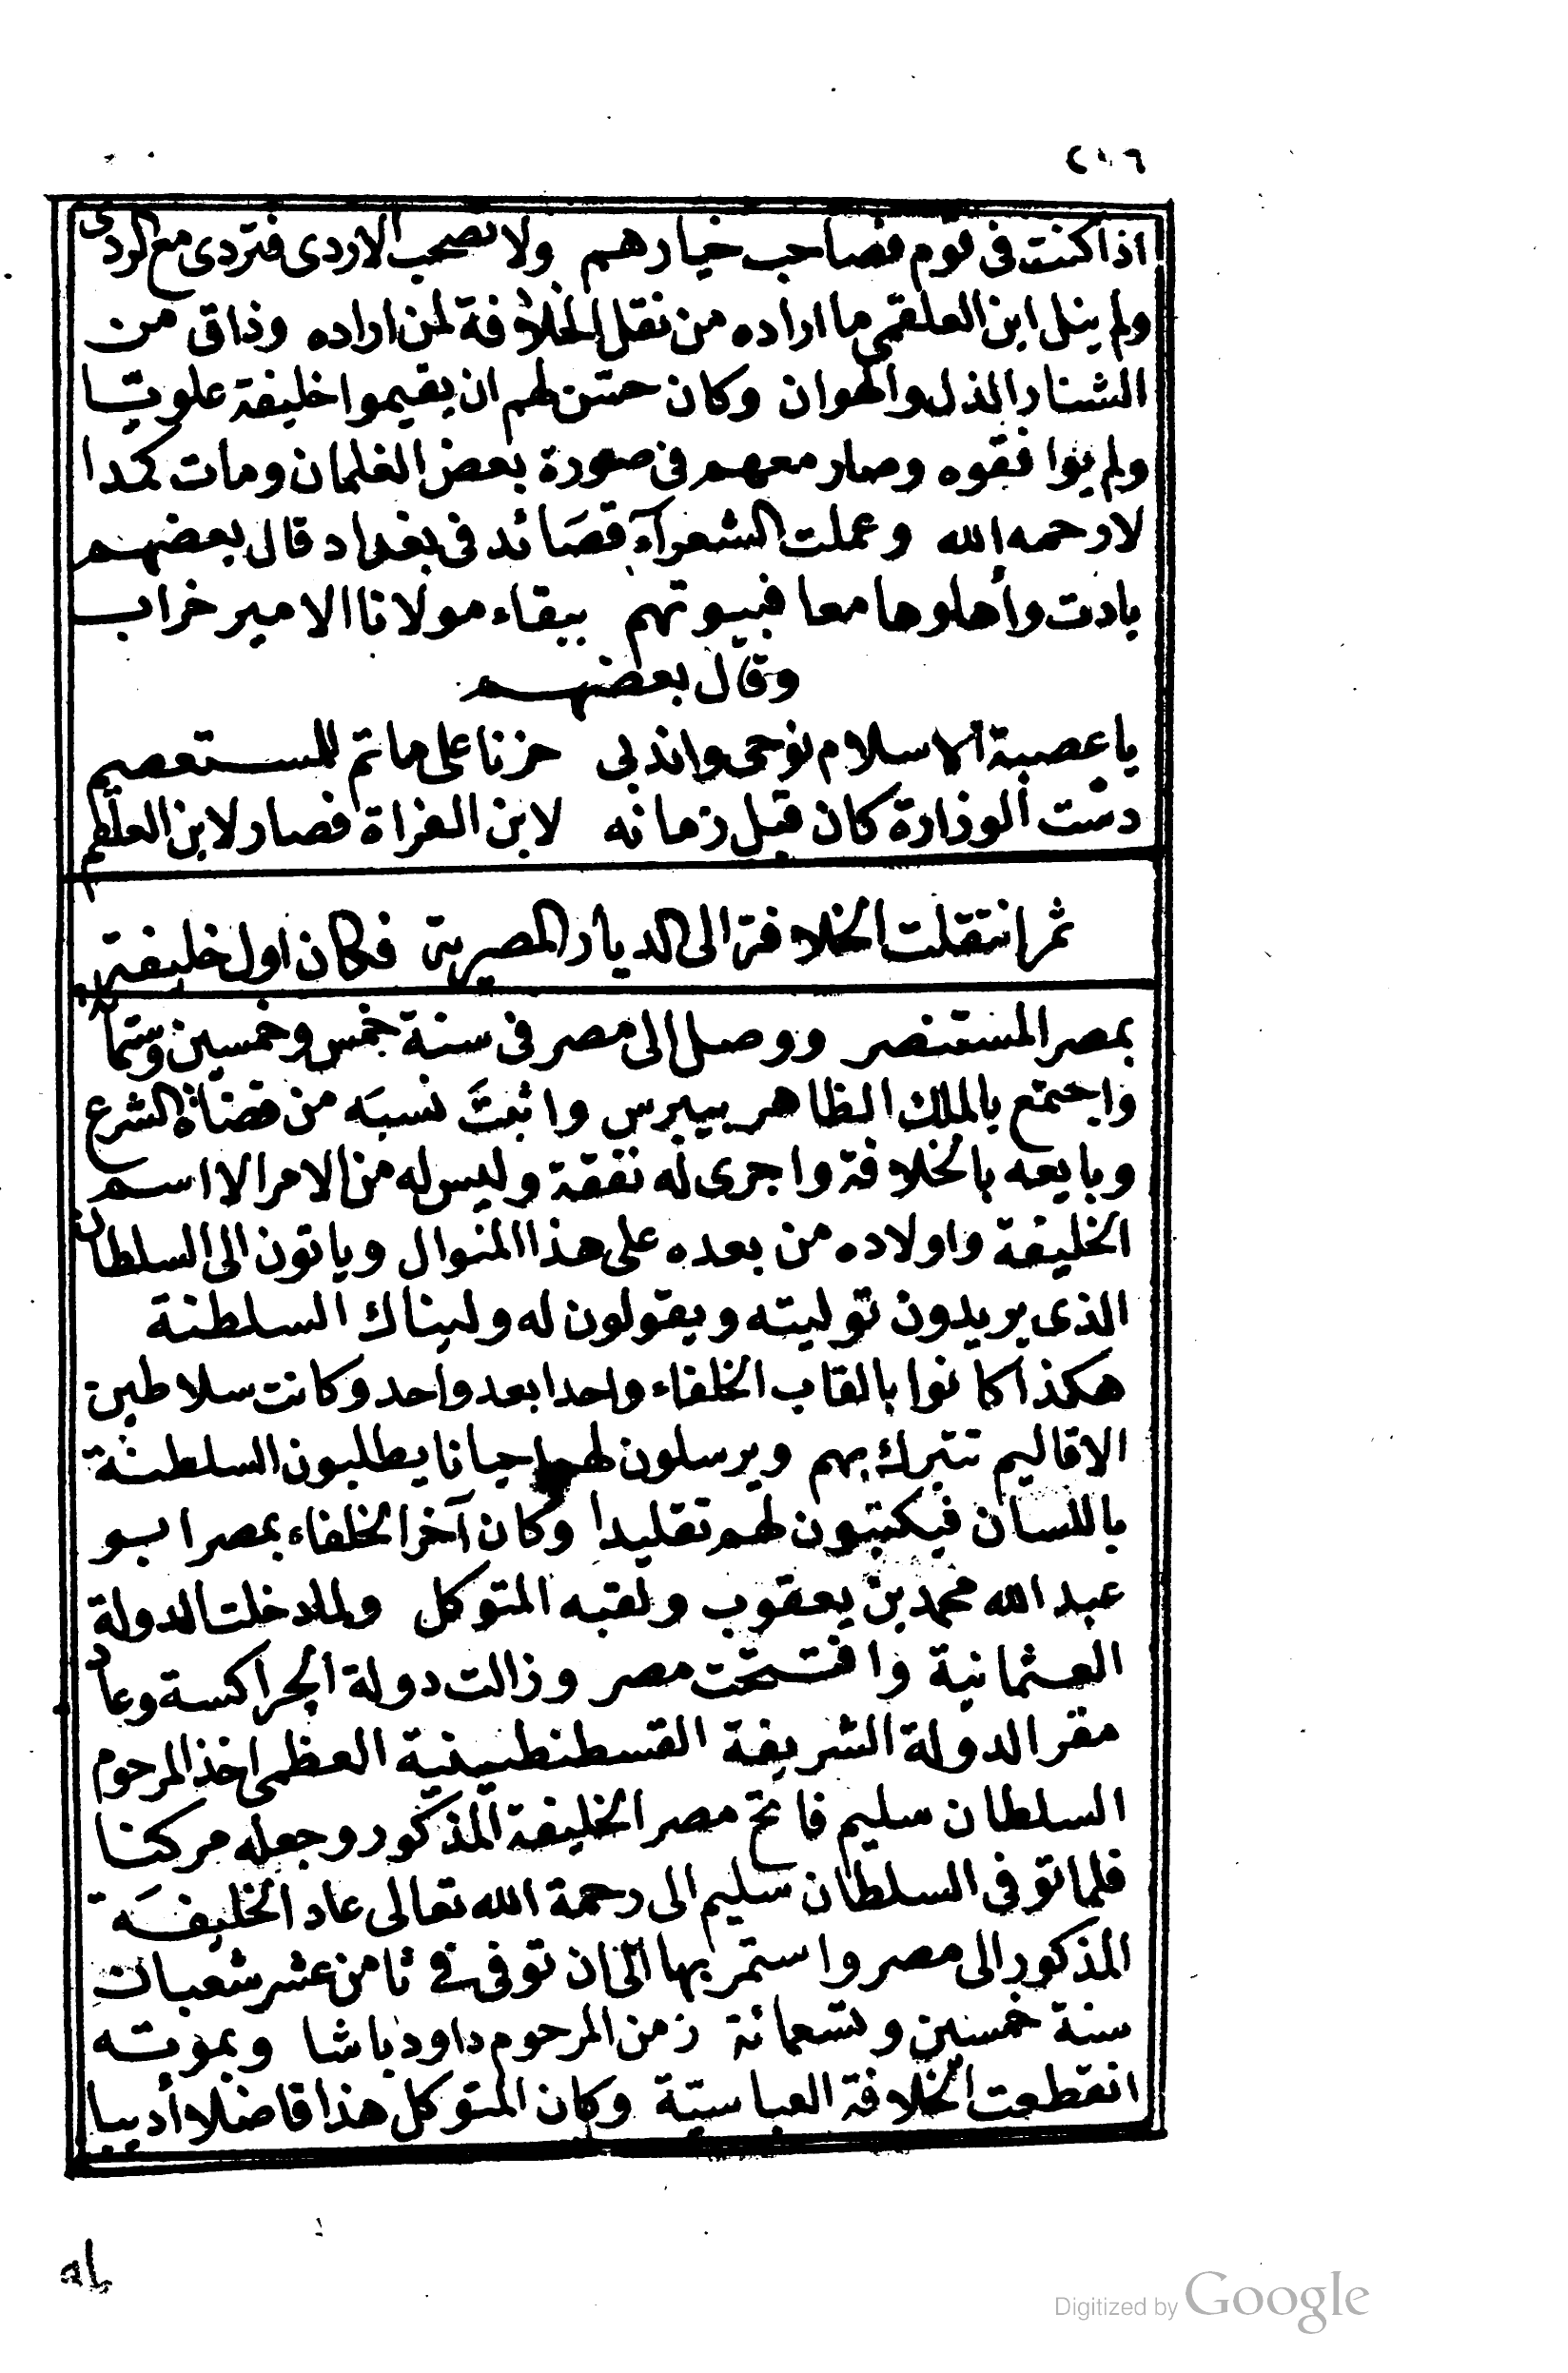 ٢١٦
اذا كنت فى قوم فصاحب خيارهم ولا تصحب الاردى فتردى مع الردى
ولم ينل ابن العلقمي ما اراده من نقل الخلافة لمن اراده وذاق من
الشنار الذل والهوان وكان حسّن لهم ان يقيموا خليفة علويّا
ولم يوا فقوه وصار معهم فى صورة بعض الغلمان ومات كمدا
لا رحمه الله وعملت الشعرآء قصَائد فى بغداد قال بعضهم
بادت وأهلوها معا فبيوتهم ببقاء مولانا الامير خراب
وقال بعضهم
يا عصبة الاسلام نوحى واندبى حزنا على ما تم للمستعصم
دست الوزارة كان قبل زمانه لابن الفراة فصار لابن العلقم
ثم انتقلت الخلافة الى الديار المصرية فكان اول خليفة بها
بمصر المستنصر ووصل الى مصر فى سنة خمس وخمسين وستما
واجتمع بالملك الظاهر بيبرس واثبتَ نسبَه من قضاة الشرع
وبايعه بالخلافة واجرى له نفقة وليس له من الامر الا اسم
الخليفة واولاده من بعده على هذا المنوال وياتون الى السلطان
الذى يريدون توليته ويقولون له وليناك السلطنة
هكذا كانوا بالقاب الخلفاء واحدا بعد واحد وكانت سلاطين
الاقاليم تتبرك بهم ويرسلون لهم احيانا يطلبون السلطنة
باللسان فيكتبون لهم تقليدا وكان آخر الخلفاء بمصر ابو
عبد الله محمد بن يعقوب ولقبه المتوكل ولما دخلت الدولة
العثمانية وافتتحت مصر وزالت دولة الجراكسة وعاد
مقر الدولة الشريفة القسطنطينية العظمى اخذ المرحوم
السلطان سليم فاتح مصر الخليفة المذكور وجعله مركنا
فلما توفى السلطان سليم الى رحمة الله تعالى عاد الخليفَة
المذكور الى مصر واستمر بها الى ان توفى فى ثامن عشر شعبان
سنة خمسين وتسعمائة زمن المرحوم داود باشا وبموته
انقطعت الخلافة العباسيّة وكان المتوكل هذا فاضلا أديبا
له
Digitized by Google